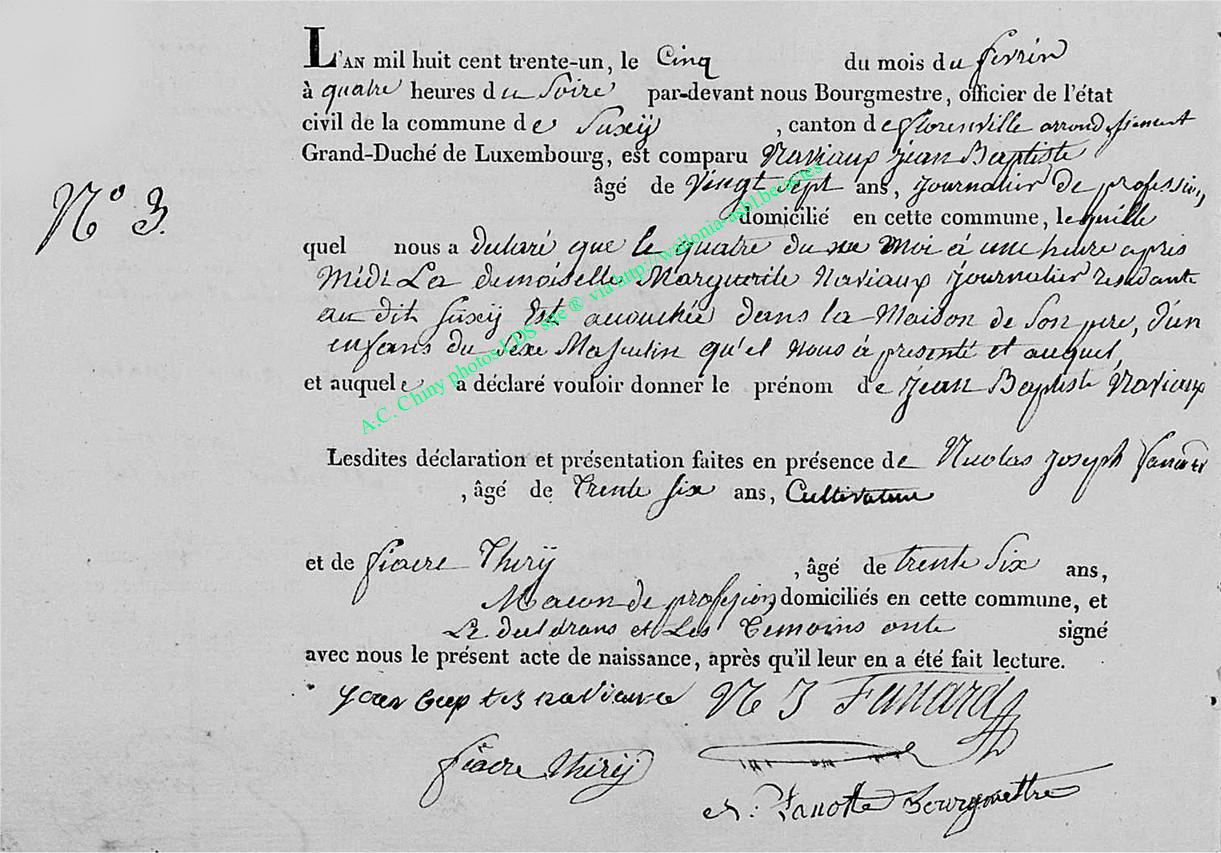 L'AN mil huit cent trente-un, le Cinq du mois du fevrir
à quatre heures du Soire par-devant nous Bourgmestre, officier de l'état
civil de la commune de Suxÿ , canton de florenville arrondissement
Grand-Duché de Luxembourg, est comparu Naviaux jean Baptiste
N° 3.
âgé de Vingt Sept ans, journalier de profession,
domicilié en cette commune, lequille
quel nous a declaré que le quatre du me Moi à une heure apres
Midi La demoiselle Marguerite Naviaux journalier residante
au dit Suxÿ Est acouchée dans la Maison de Son pere, d'un
enfans du Sexe Masculin qu'el nous à presenté et auquel,
et auquele a déclaré vouloir donner le prénom de jean Baptiste Naviaux
A.C. Chiny photos LDS site ® via http://wallonia-asbl.be/actes
Lesdites déclaration et présentation faites en présence de Nicolas joseph
, âgé de Trente Six ans, Cultivateur
et de fiacre Thirÿ , âgé de trente Six ans,
Macon de profession domiciliés en cette commune, et
Le et Les Temoins onte signé
avec nous le présent acte de naissance, après qu'il leur en a été fait lecture.
jean baptes naviaux N J Fanard
fiacre thirÿ
Lanotte Bourgmettre